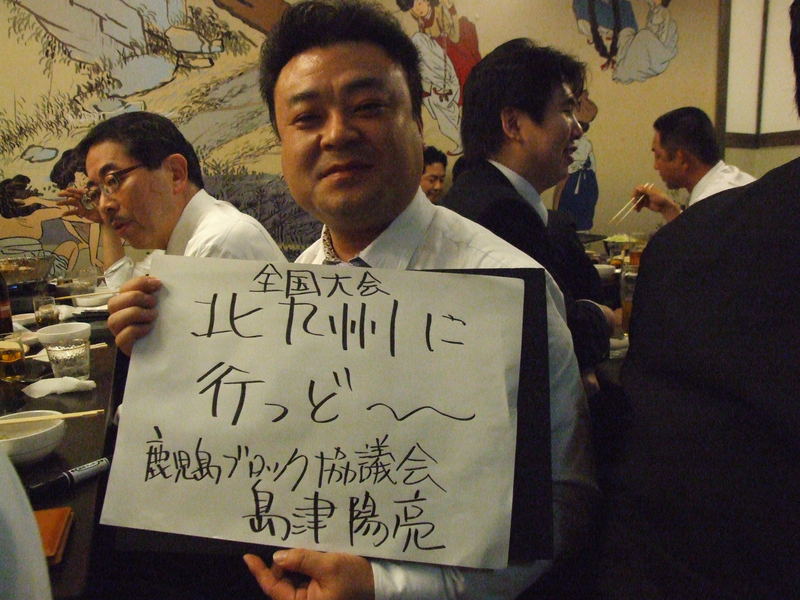 全国大会
北九州に
行っど〜
鹿児島ブロック協議会
島津陽亮